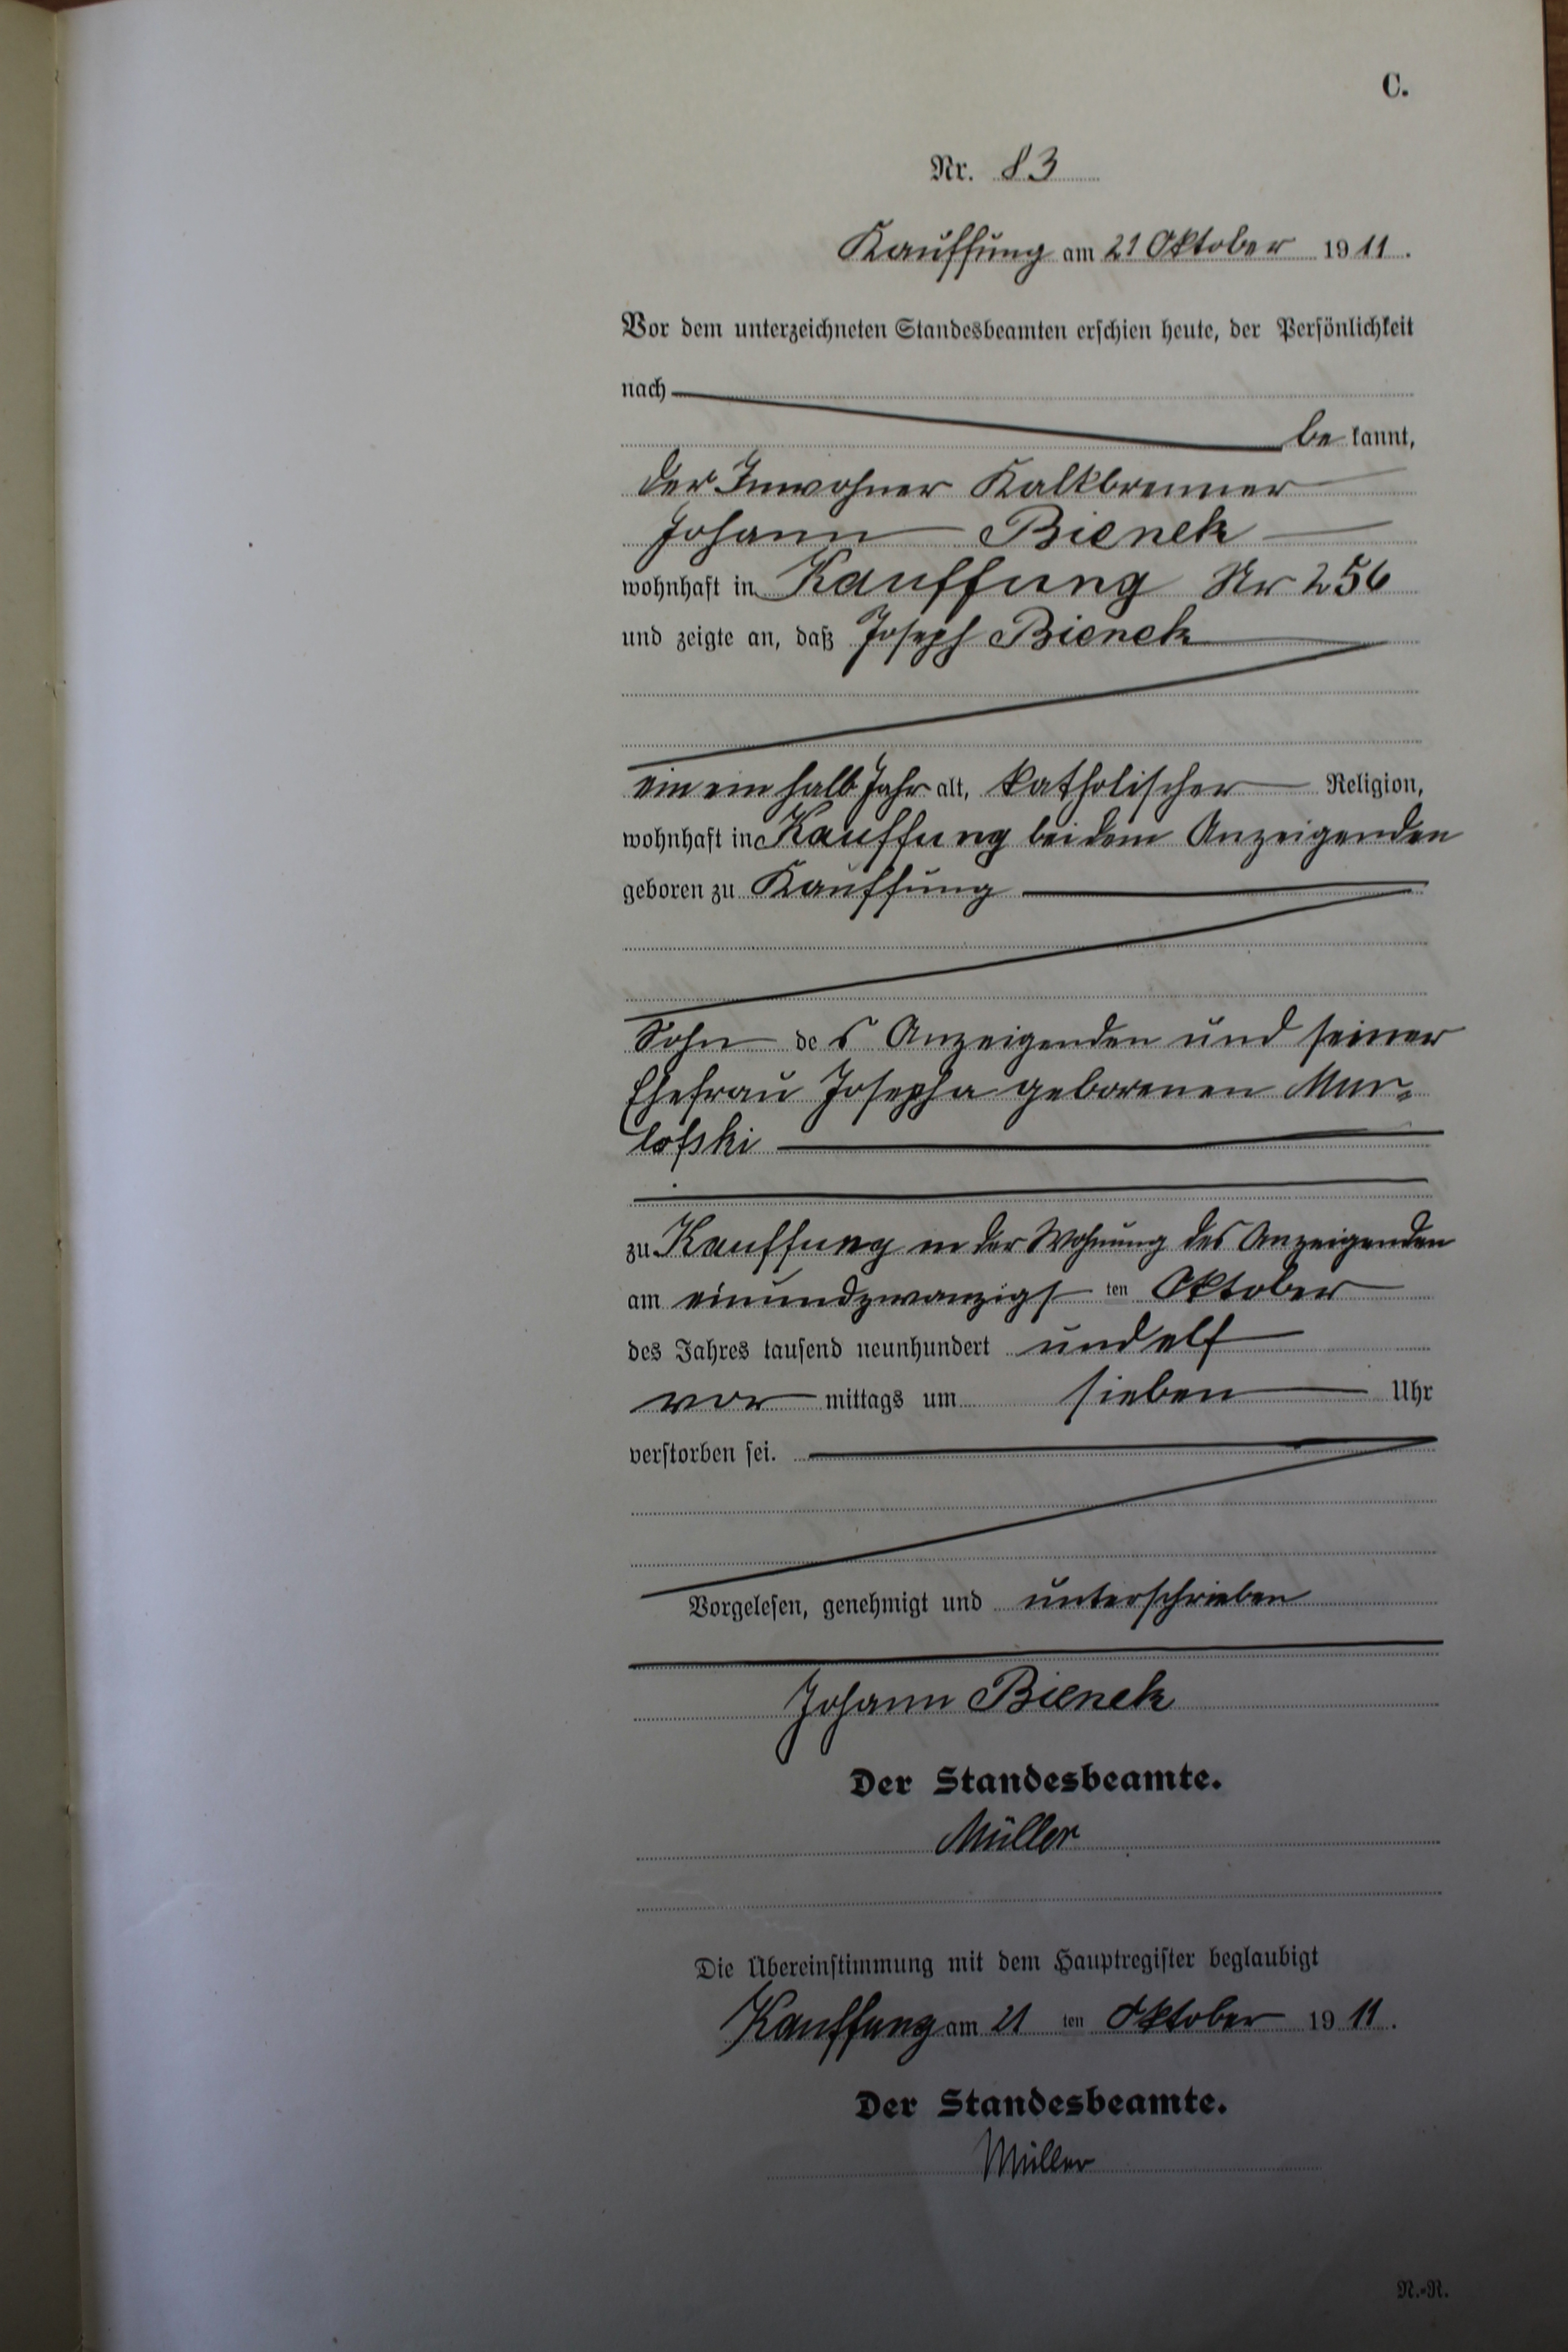 C.
Nr. 83
Kauffung am 21 Oktober 1911.
Vor dem unterzeichneten Standesbeamten erschien heute, der Persönlichkeit
nach
be kannt,
der Inwohner Kalkbrenner
Johann Bienek
wohnhaft in Kauffung Nr 256
und zeigte an, daß Joseph Bienek
ein ein halb Jahr alt, katholischer Religion,
wohnhaft in Kauffung bei dem Anzeigenden
geboren zu Kauffung
Sohn des Anzeigenden und seiner
Ehefrau Josepha geborenen Mur-
lofski
zu Kauffung in der Wohnung des Anzeigenden
am einundzwanzigsten Oktober
des Jahres tausend neunhundert und elf
vor mittags um sieben Uhr
verstorben sei.
Vorgelesen, genehmigt und unterschrieben
Johann Bienek
Der Standesbeamte.
Müller
Die Übereinstimmung mit dem Hauptregister beglaubigt
Kauffung am 21 ten Oktober 1911.
Der Standesbeamte.
Müller
N.-R.